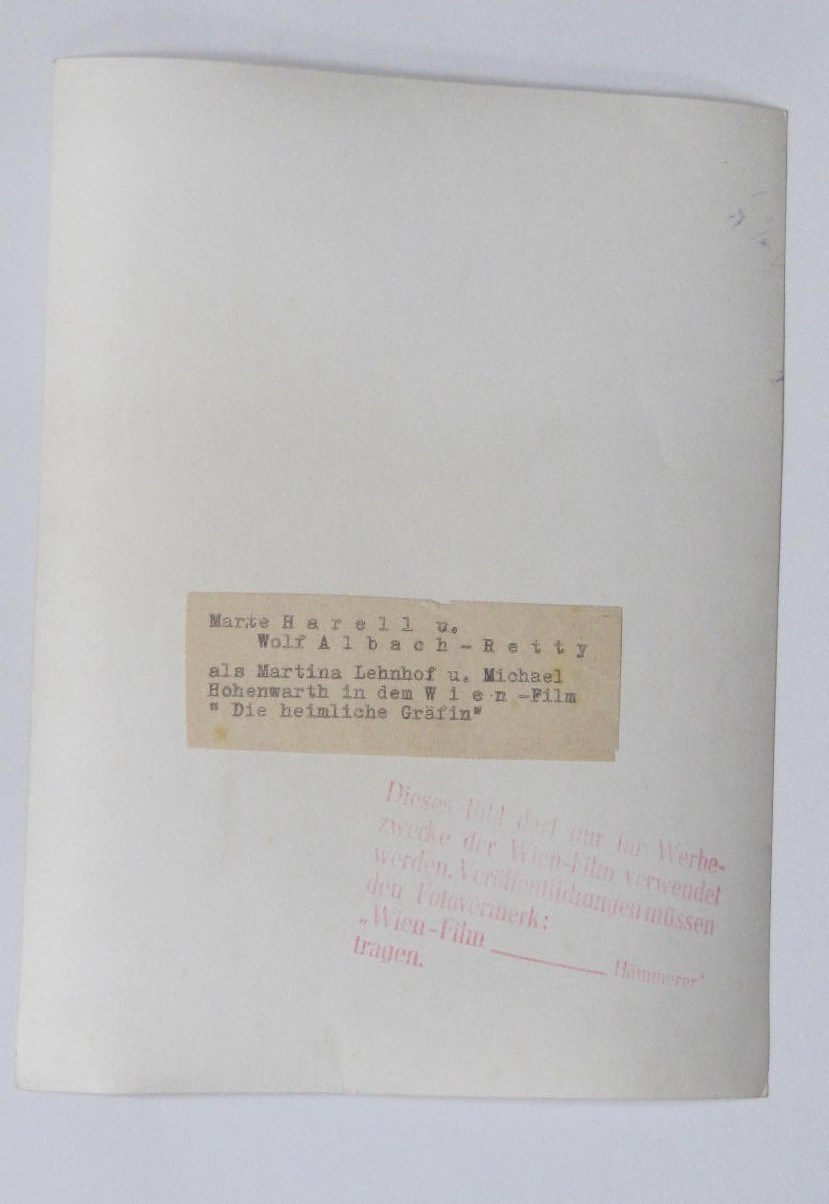 Marte H a r e l l u.
Wolf A l b a c h - R e t t y
als Martina Lehnhof u. Michael
Hohenwarth in dem W i e n -Film
" Die heimliche Gräfin"
Dieses Bild darf nur für Werbe-
zwecke der Wien-Film verwendet
werden. Veröffentlichungen müssen
den Fotovermerk:
„Wien-Film ________ Hämmerer"
tragen.